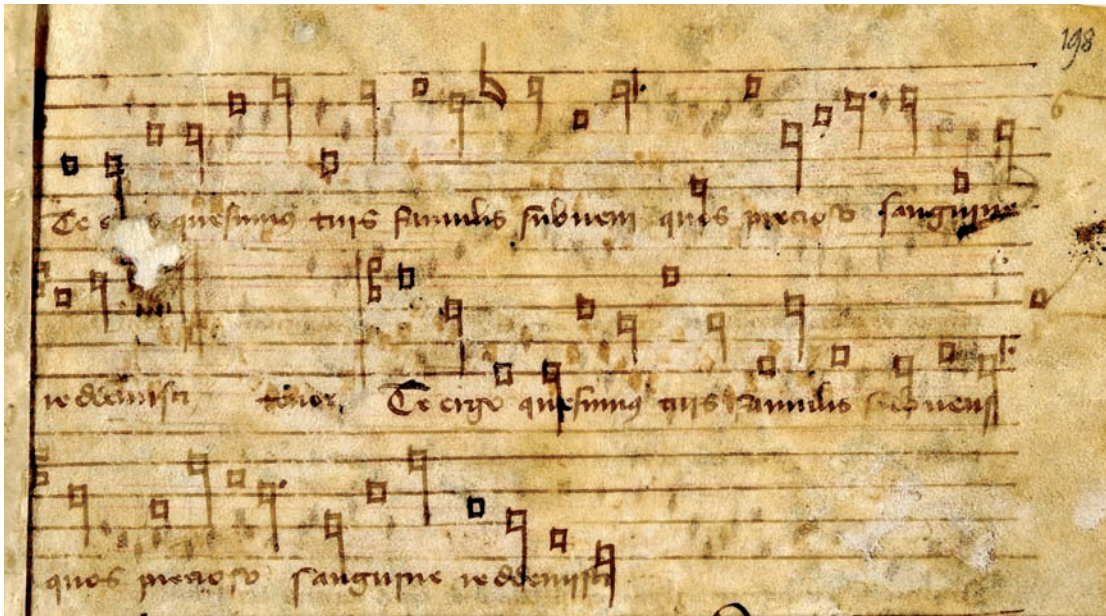 198
Te quesumus tuis famulis subveni quos precioso sanguine
reddemisti tenor Te ergo quesumus tuis famulis subveni
quos precioso sanguine reddemisti